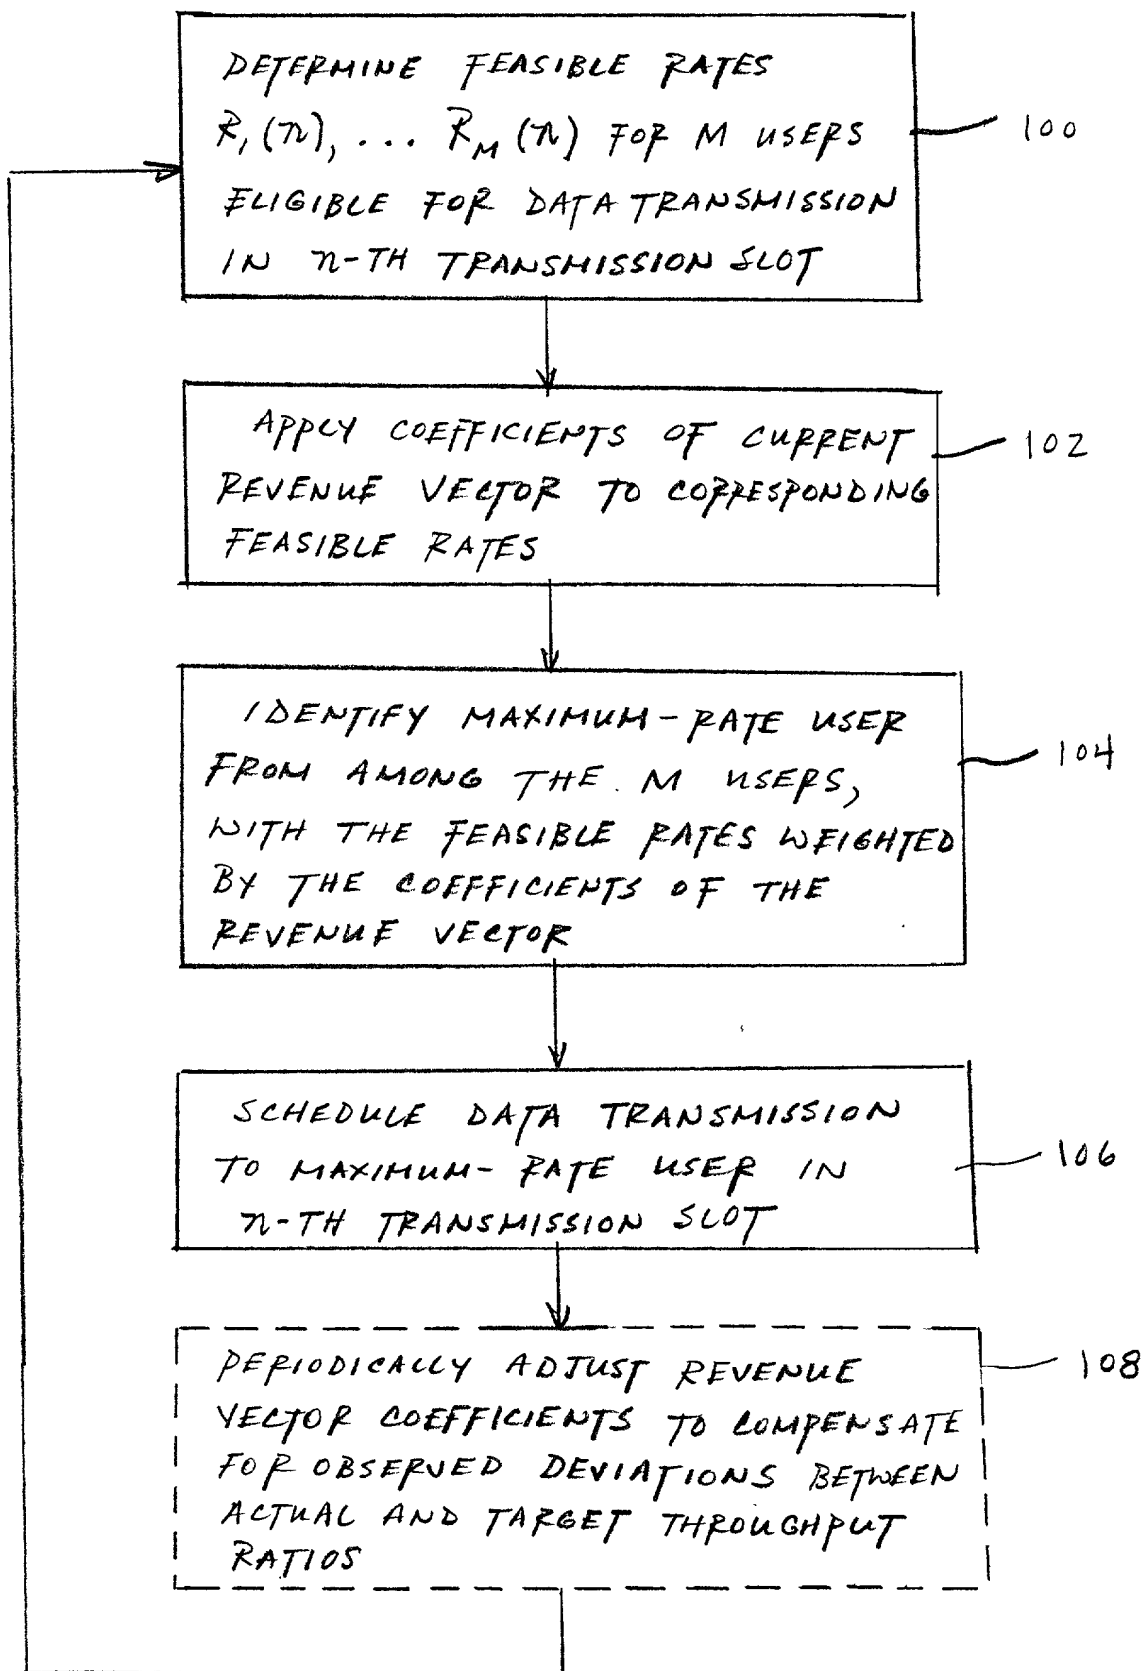 DETERMINE FEASIBLE RATES
R1(n), ... RM(n) FOR M USERS
ELIGIBLE FOR DATA TRANSMISSION
IN n-TH TRANSMISSION SLOT
100
APPLY COEFFICIENTS OF CURRENT
REVENUE VECTOR TO CORRESPONDING
FEASIBLE RATES
102
IDENTIFY MAXIMUM-RATE USER
FROM AMONG THE M USERS,
WITH THE FEASIBLE RATES WEIGHTED
BY THE COEFFICIENTS OF THE
REVENUE VECTOR
104
SCHEDULE DATA TRANSMISSION
TO MAXIMUM-RATE USER IN
n-TH TRANSMISSION SLOT
106
PERIODICALLY ADJUST REVENUE
VECTOR COEFFICIENTS TO COMPENSATE
FOR OBSERVED DEVIATIONS BETWEEN
ACTUAL AND TARGET THROUGHPUT
RATIOS
108